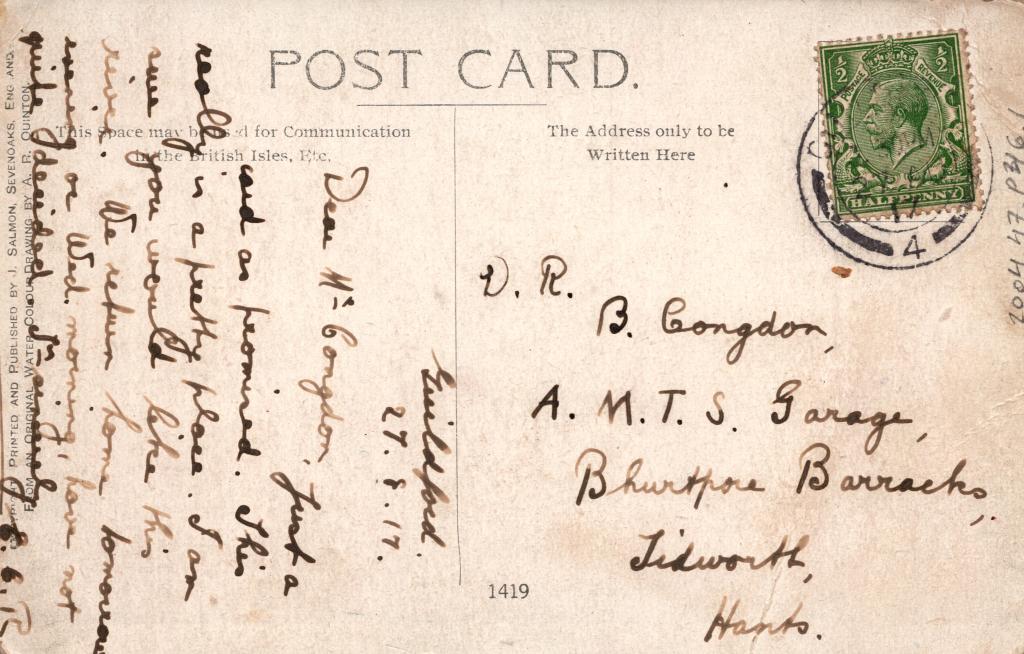 POST CARD.
This Space may be used for Communication
in the British Isles, Etc.
The Address only to be
Written Here
Guildford.
27.8.17.
Dear Mr Congdon, Just a
card as promised. This
really is a pretty place. I am
sure you would like this
river. We return home tomorrow
evening or Wed. morning, have not
quite decided.
D. R.
B. Congdon,
A. M. T. S. Garage,
Bhurtpore Barracks,
Tidworth,
Hants.
1419
PRINTED AND PUBLISHED BY J. SALMON, SEVENOAKS, ENGLAND.
FROM AN ORIGINAL WATER COLOUR DRAWING BY A. R. QUINTON
½ ½
POSTAGE REVENUE
HALFPENNY
17
4
2004.47.P346.1